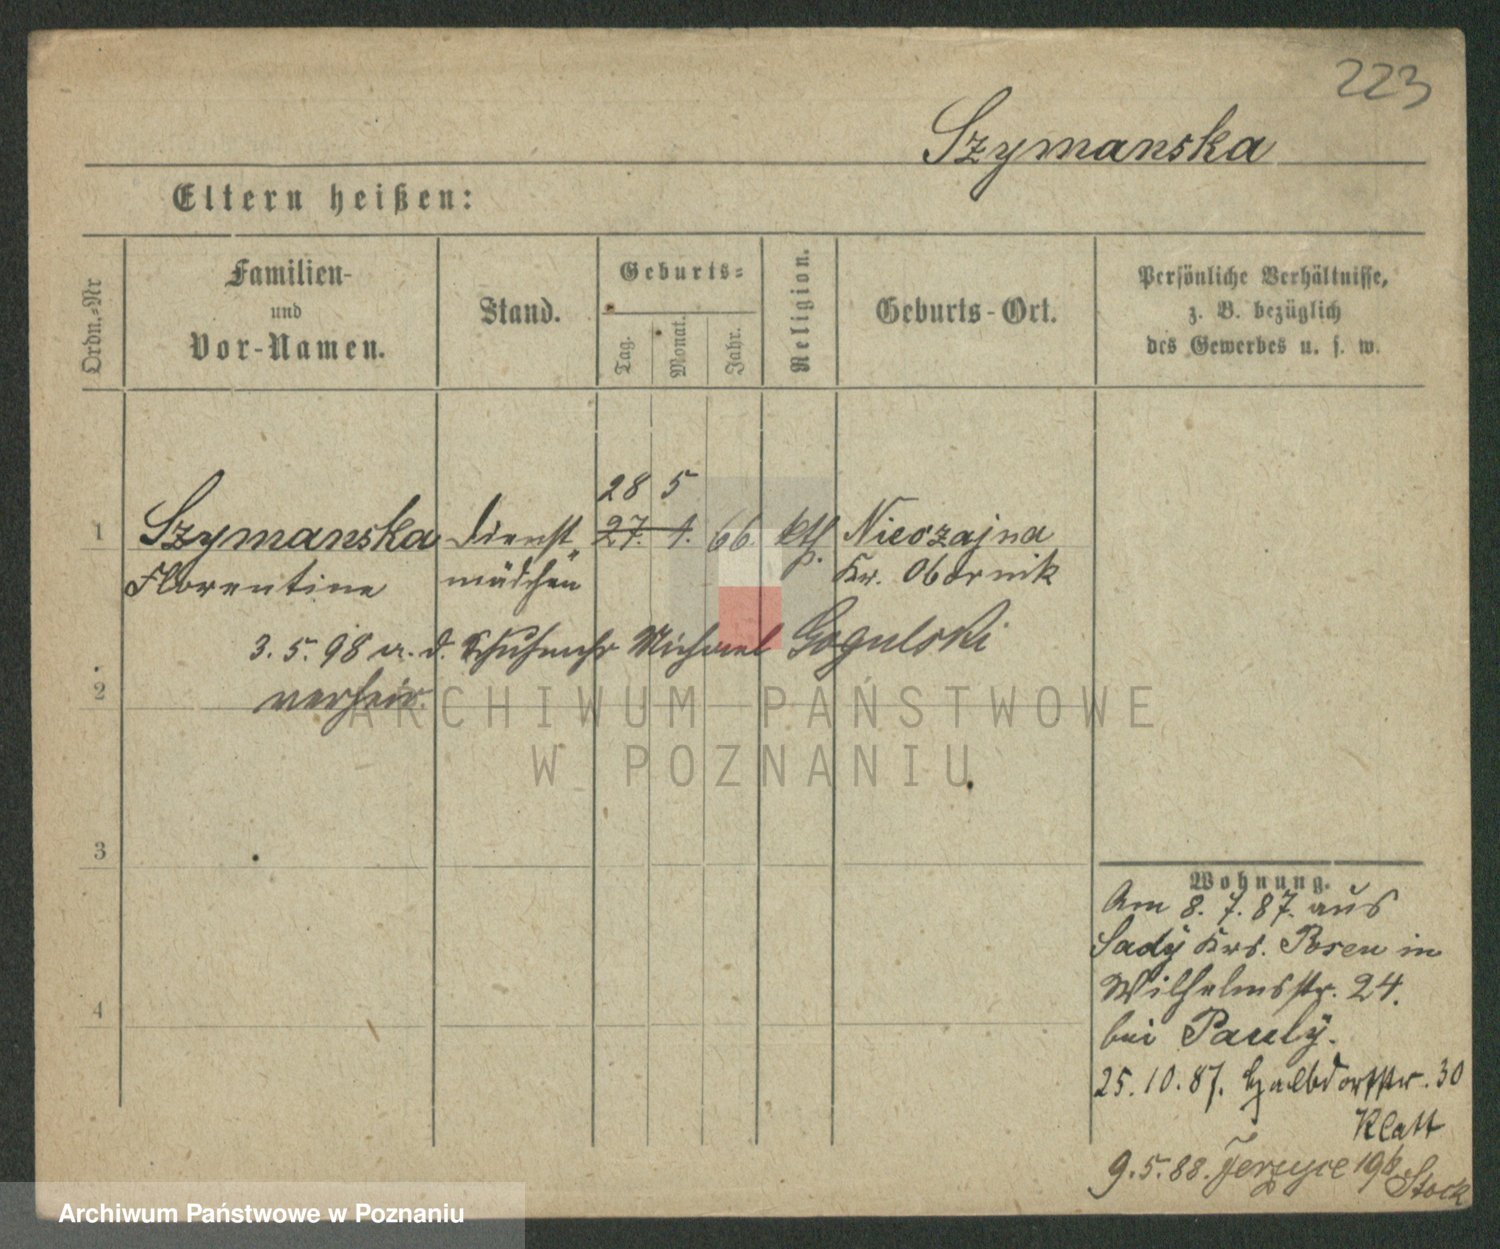 223
Szymanska
Eltern heißen:
Ordn.-Nr
Familien-
und
Vor-Namen.
Stand.
Geburts-
Tag.
Monat.
Jahr.
Religion.
Geburts-Ort.
Persönliche Verhältnisse,
z. B. bezüglich
des Gewerbes u. s. w.
28 5
1 Szymanska Dienst 27. 1. 66. kth. Nieczajna
Florentine mädchen Kr. Obornik
3. 5. 98 a. d. Michael Gogulski
2 verheir.
ARCHIWUM PAŃSTWOWE
W POZNANIU
3
4
Wohnung.
Am 8. 7. 87. aus
Sady Krs. Posen in
Wilhelmsstr. 24.
bei Pauly.
25. 10. 87. Halbdorfstr. 30
Klatt
9. 5. 88. Jerzyce Stock
Archiwum Państwowe w Poznaniu